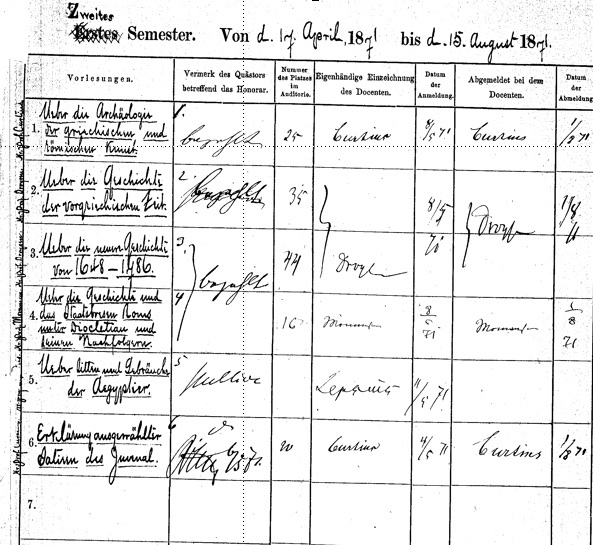 Zweites
Erstes Semester. Von d. 17. April, 1871 bis d. 15. August 1871.
Vorlesungen.
Vermerk des Quästors
betreffend das Honorar.
Nummer
des Platzes
im
Auditorio.
Eigenhändige Einzeichnung
des Docenten.
Datum
der
Anmeldung.
Abgemeldet bei dem
Docenten.
Datum
der
Abmeldung.
1.
Ueber die Archäologie
der griechischen und
römischen Kunst.
1.
bezahlt
25
Curtius
4/5 71
Curtius
1/8 71
2.
Ueber die Geschichte
der vorgriechischen Zeit.
2.
bezahlt
35
8/5
71
Droysen
1/8
71
3.
Ueber die neuere Geschichte
von 1648-1786.
3.
bezahlt
44
Droysen
4.
Ueber die Geschichte und
das Staatswesen Roms
unter Diocletian und
seinen Nachfolgern.
4
16
Mommsen
8
5
71
Mommsen
5
8
71
5.
Ueber Sitten und Gebräuche
der Aegyptier.
5
Publice
Lepsius
11/5 71.
6.
Erklärung ausgewählter
Satiren des Juvenal.
6
20
Curtius
4/5 71
Curtius
1/8 71
7.